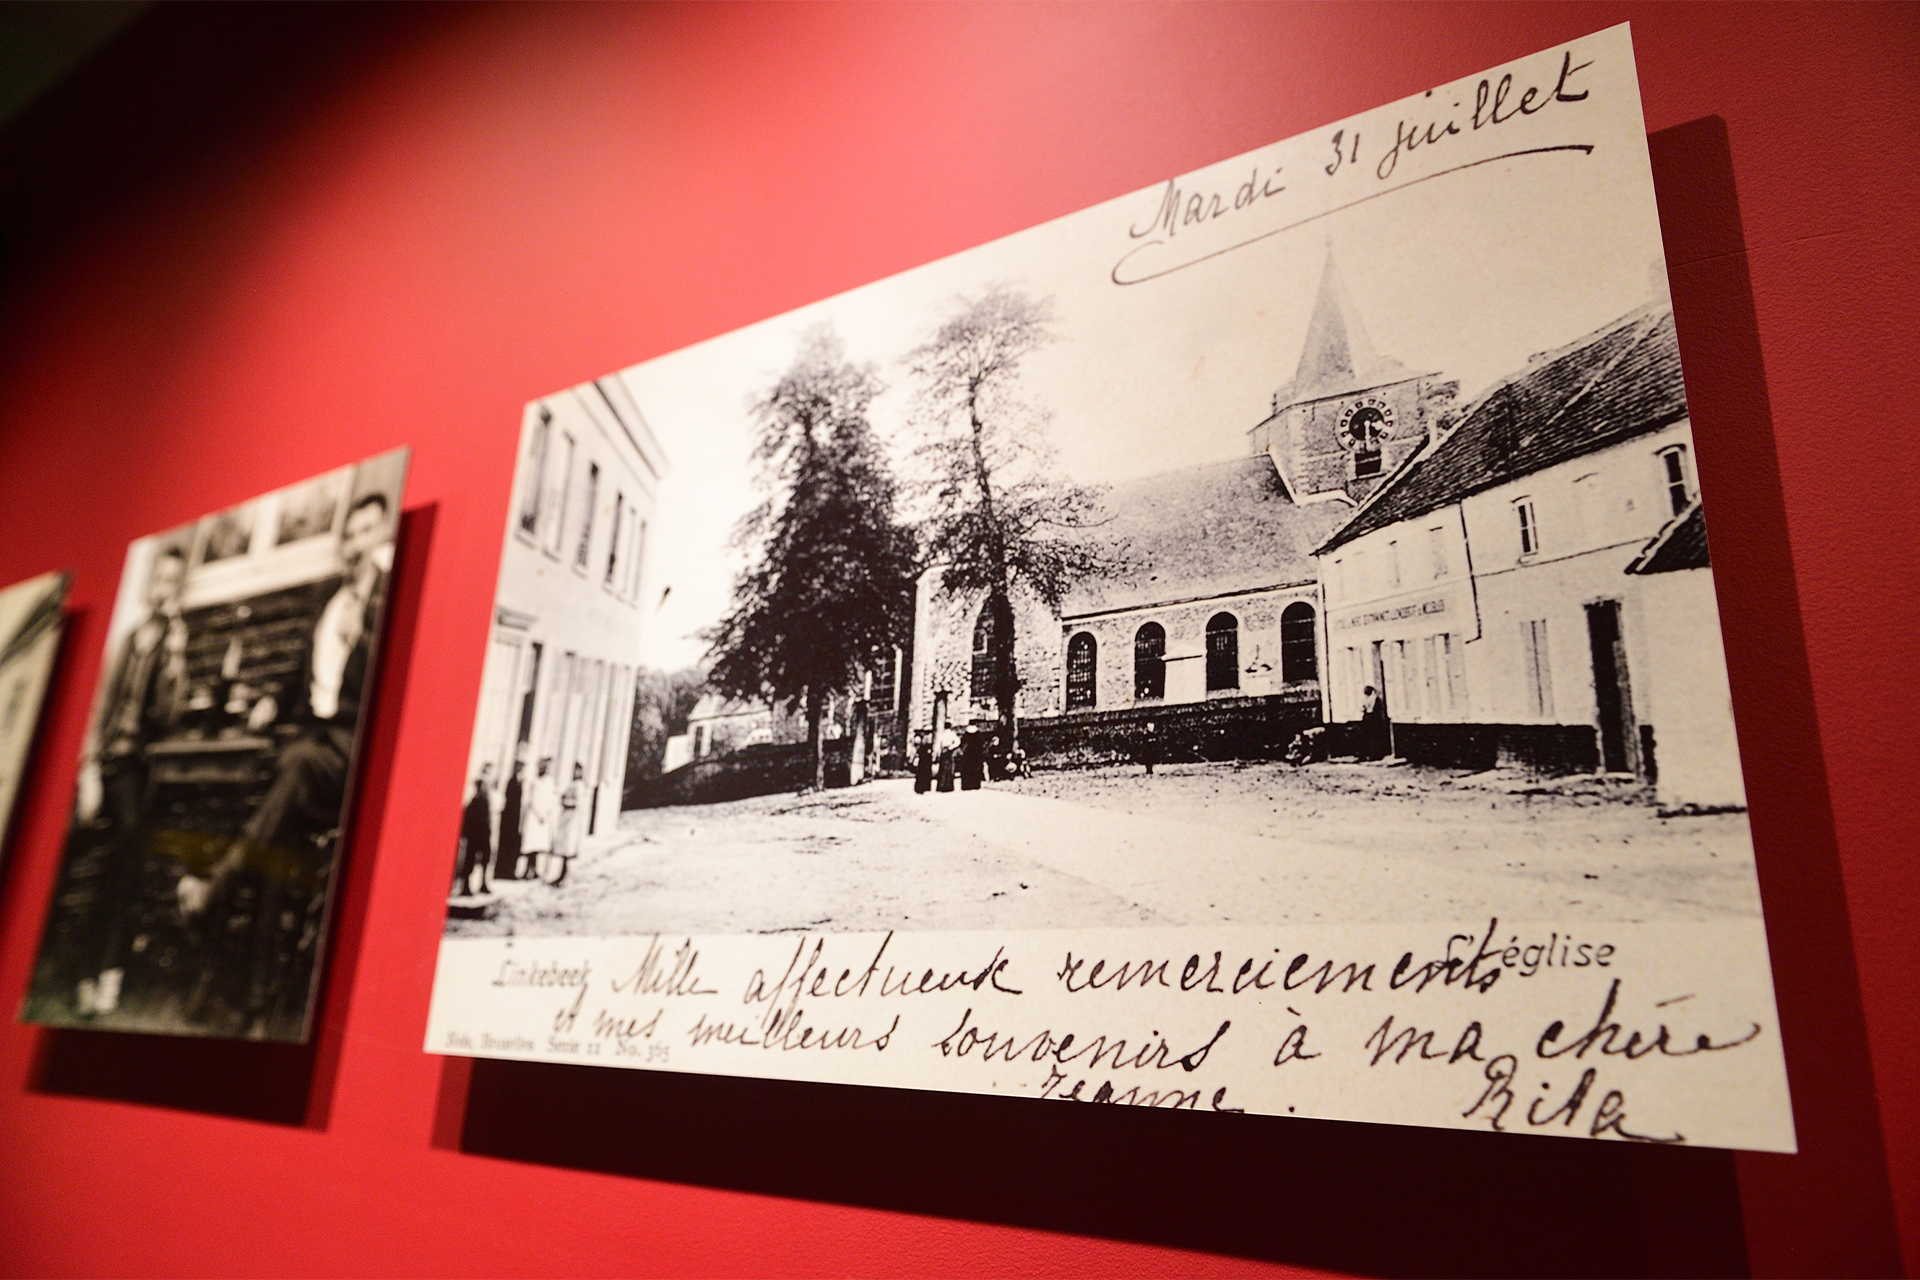 Mardi 31 juillet
Linkebeek
L'église
Mille affectueux remerciements
et mes meilleurs souvenirs à ma chère
Jeanne.
Rita
Nels, Bruxelles Serie 11 No. 365